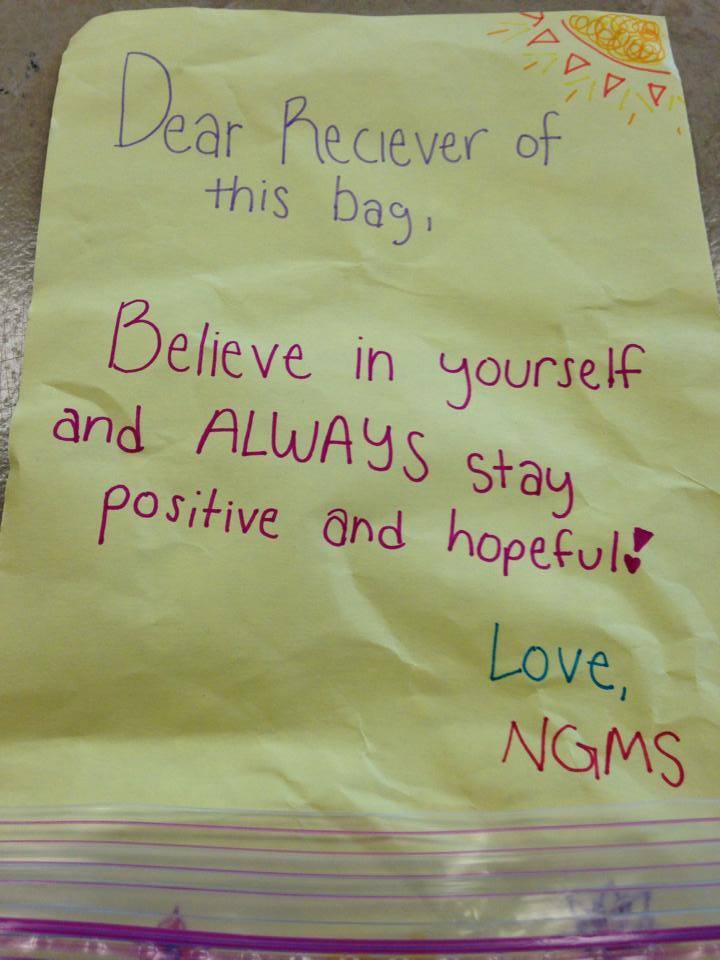 Dear Reciever of
this bag,
Believe in yourself
and ALWAYS stay
positive and hopeful!
Love,
NGMS